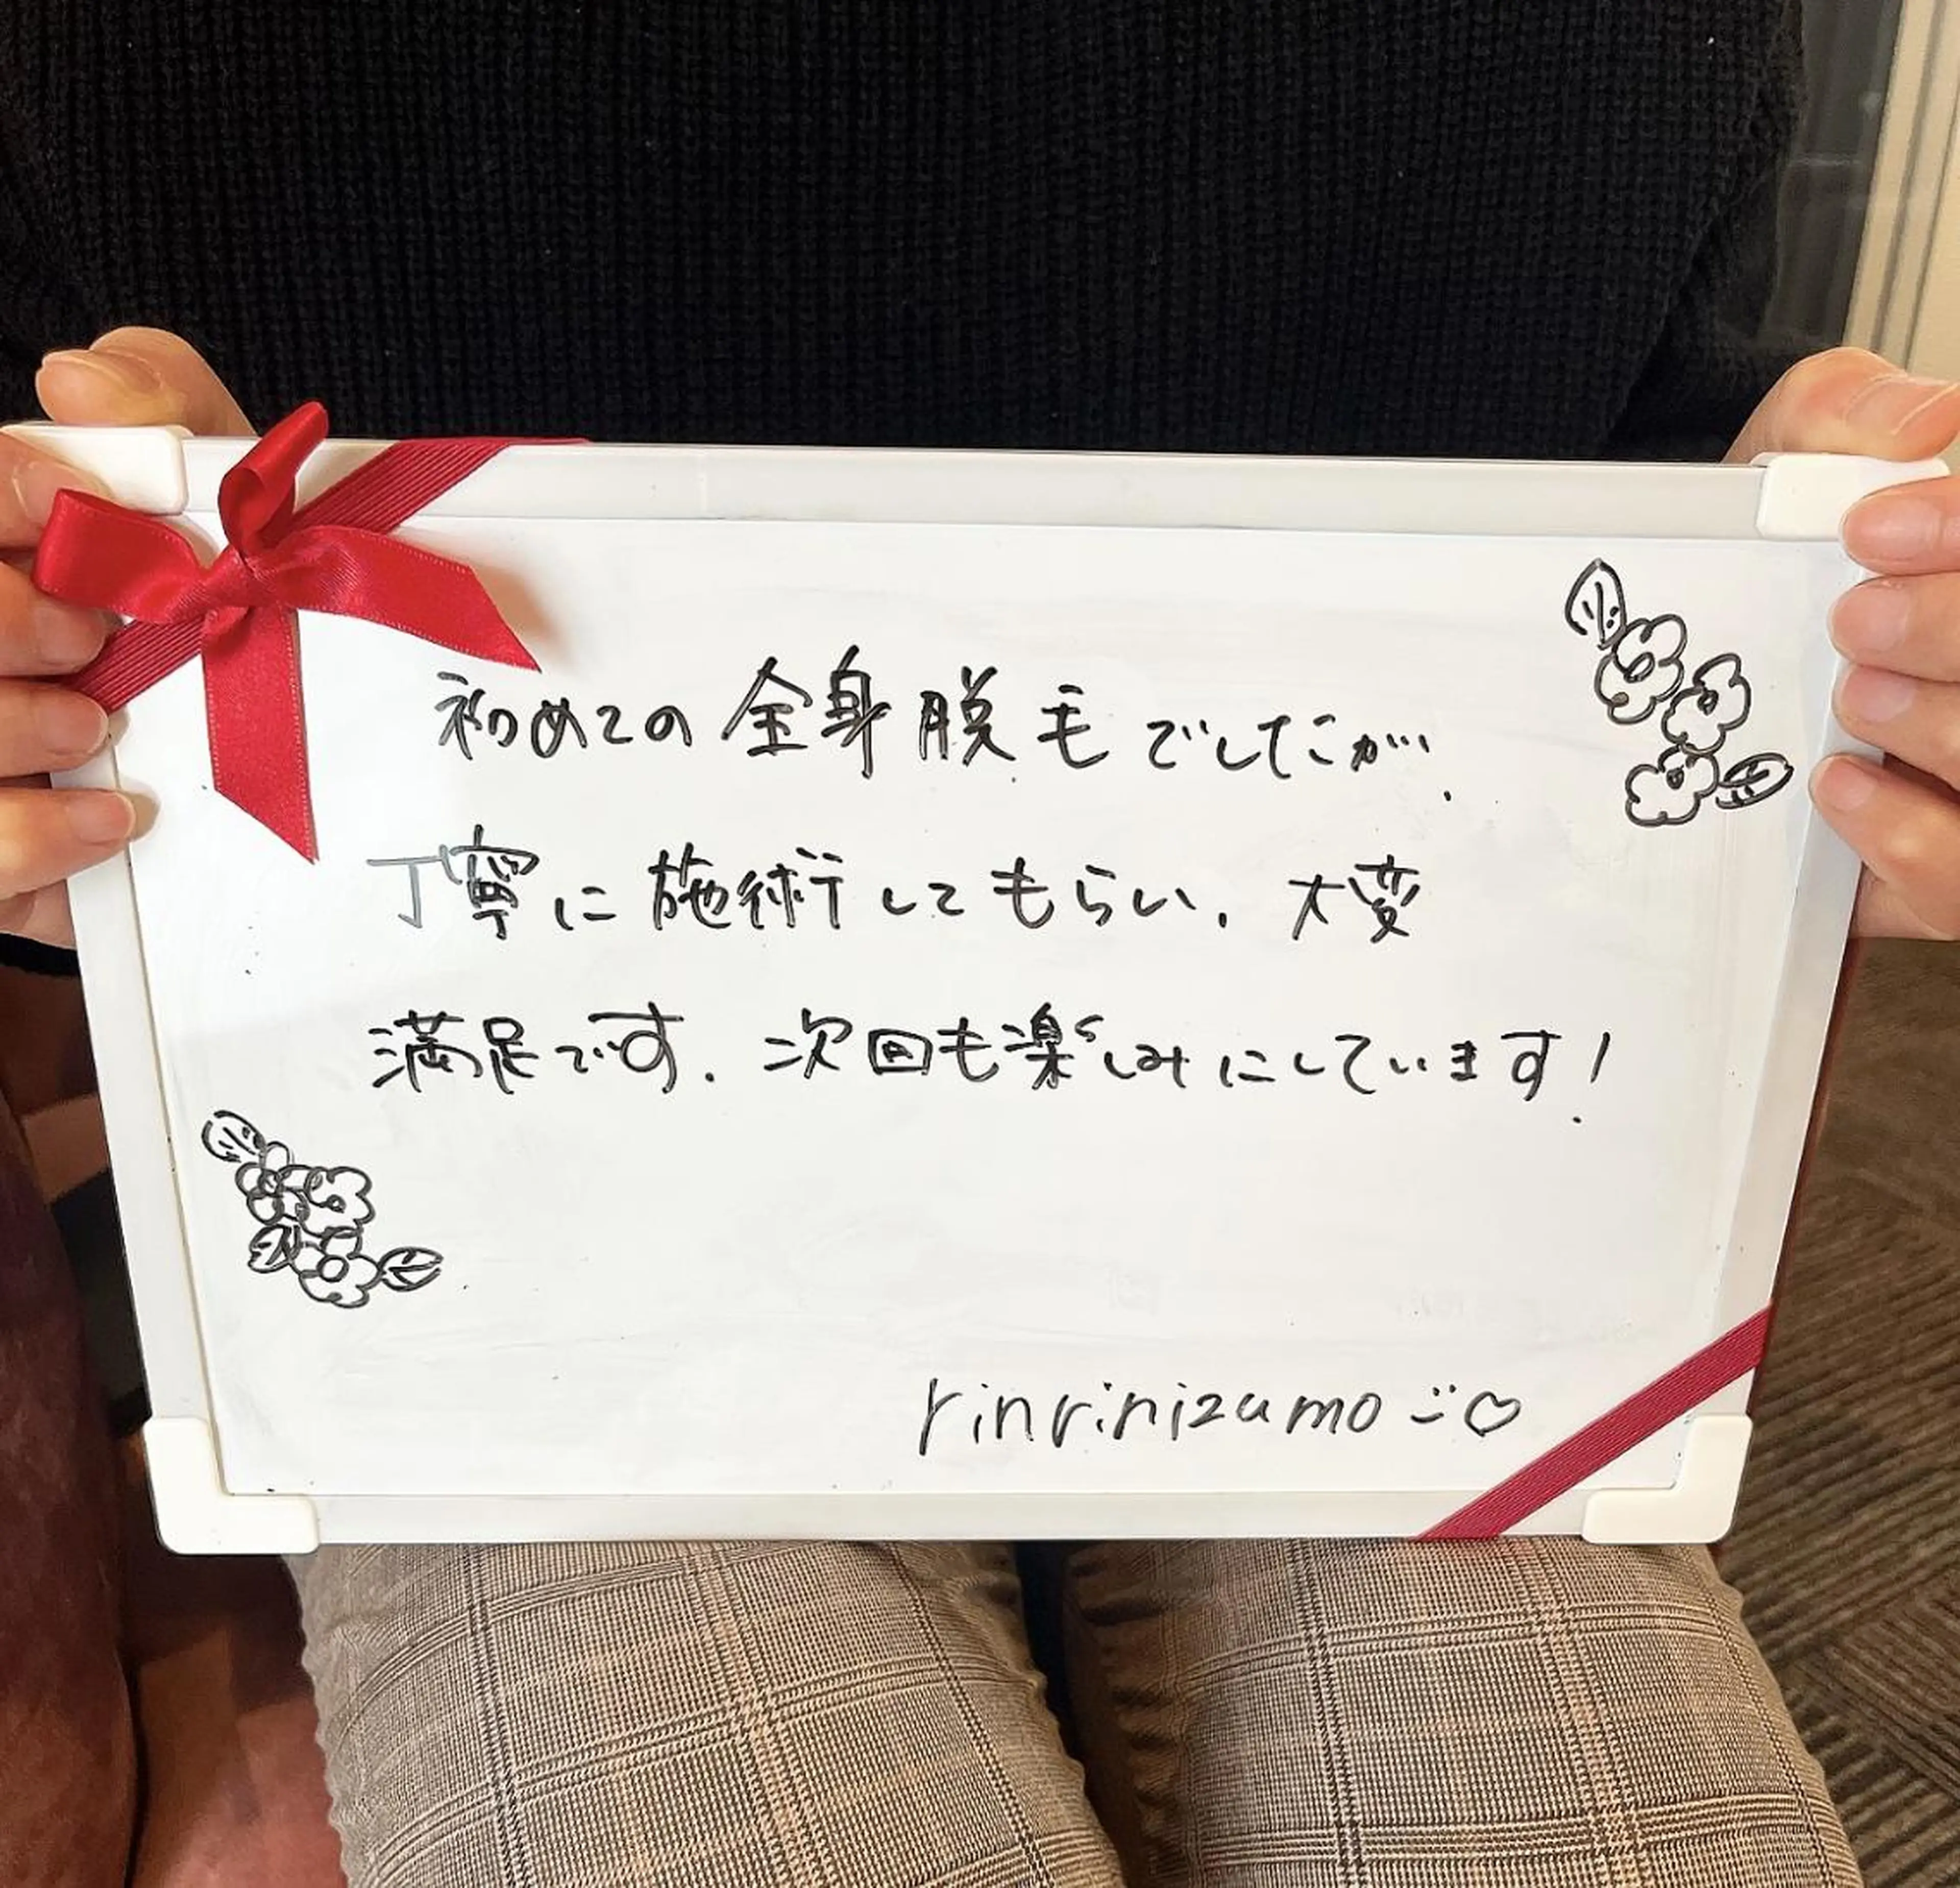 初めての全身脱毛でしたが、
丁寧に施術してもらい、大変
満足です。次回も楽しみにしています!
rinrinizumo